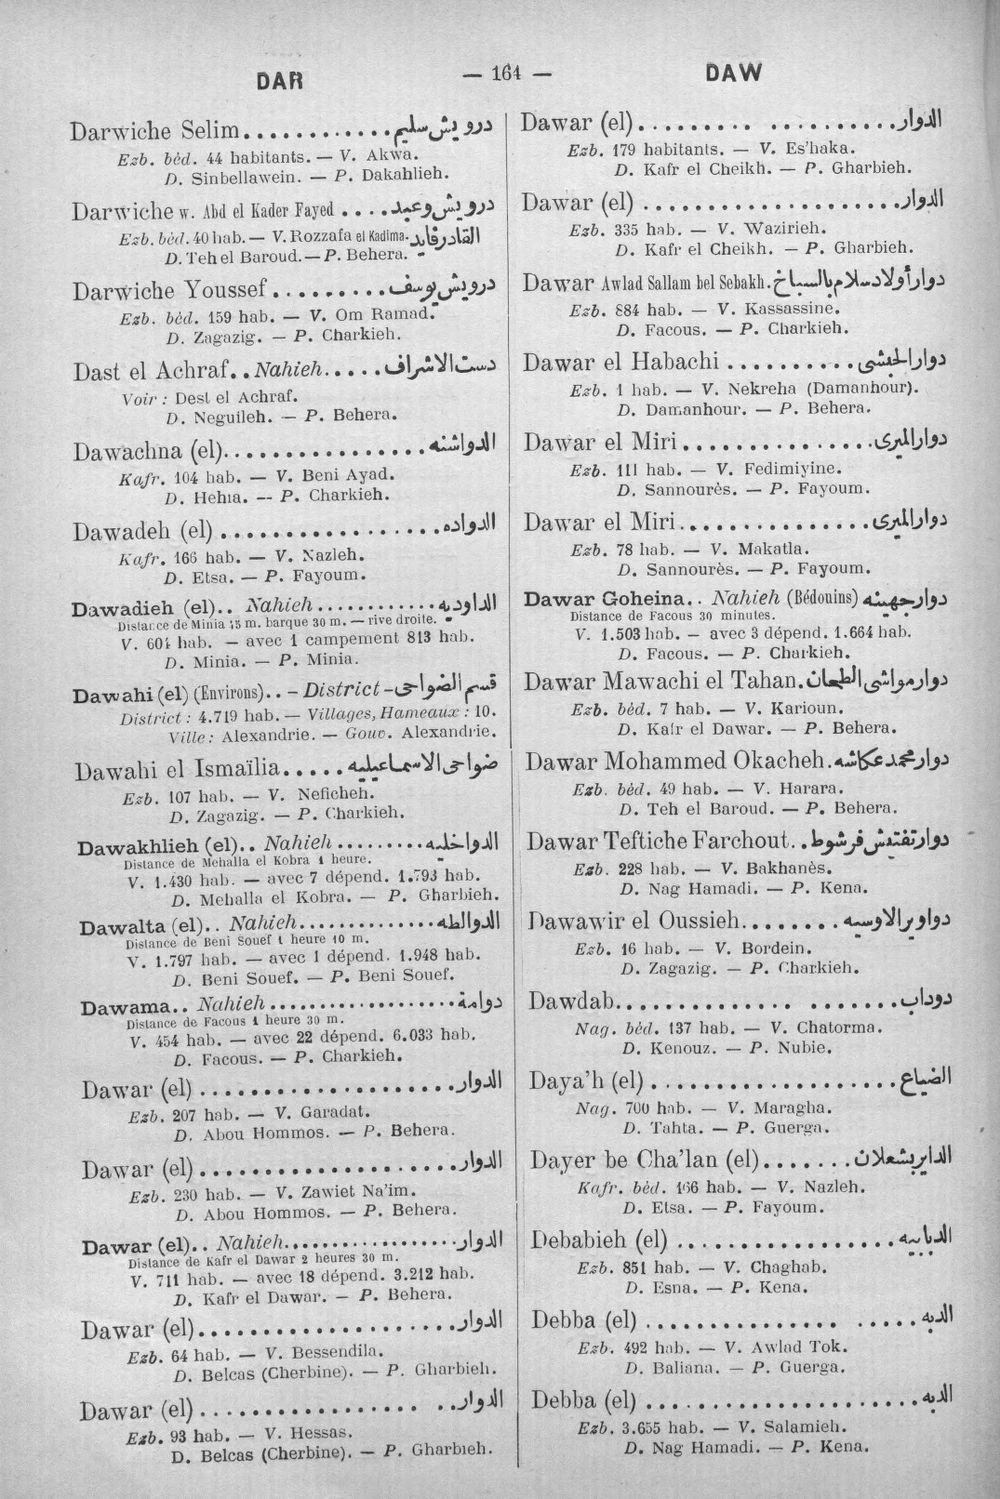 DAR
— 164 —
DAW
Darwiche Selim............درويش سليم
Ezb. béd. 44 habitants. — V. Akwa.
D. Sinbellawein. — P. Dakahlieh.
Darwiche w. Abd el Kader Fayed ....درويش وعبد
Ezb. béd. 40 hab. — V. Rozzafa el Kadima. القادر فايد
D. Teh el Baroud. — P. Behera.
Darwiche Youssef.........درويش يوسف
Ezb. béd. 159 hab. — V. Om Ramad.
D. Zagazig. — P. Charkieh.
Dast el Achraf.. Nahieh.....دست الاشراف
Voir : Dest el Achraf.
D. Neguileh. — P. Behera.
Dawachna (el)................الدواشنه
Kafr. 104 hab. — V. Beni Ayad.
D. Hehia. -- P. Charkieh.
Dawadeh (el).................الدواده
Kafr. 166 hab. — V. Nazleh.
D. Etsa. — P. Fayoum.
Dawadieh (el).. Nahieh............الداوديه
Distance de Minia 45 m. barque 30 m. — rive droite.
V. 604 hab. — avec 1 campement 813 hab.
D. Minia. — P. Minia.
Dawahi (el) (Environs).. - District - قسم الضواحى
District : 4.719 hab. — Villages, Hameaux : 10.
Ville : Alexandrie. — Gouv. Alexandrie.
Dawahi el Ismaïlia.....ضواحى الاسماعيليه
Ezb. 107 hab. — V. Neficheh.
D. Zagazig. — P. Charkieh.
Dawakhlieh (el).. Nahieh.........الدواخليه
Distance de Mehalla el Kobra 1 heure.
V. 1.430 hab. — avec 7 dépend. 1.793 hab.
D. Mehalla el Kobra. — P. Gharbieh.
Dawalta (el).. Nahieh..............الدوالطه
Distance de Beni Souef 1 heure 10 m.
V. 1.797 hab. — avec 1 dépend. 1.948 hab.
D. Beni Souef. — P. Beni Souef.
Dawama.. Nahieh...................دوامة
Distance de Facous 1 heure 30 m.
V. 454 hab. — avec 22 dépend. 6.033 hab.
D. Facous. — P. Charkieh.
Dawar (el)....................الدوار
Ezb. 207 hab. — V. Garadat.
D. Abou Hommos. — P. Behera.
Dawar (el)....................الدوار
Ezb. 230 hab. — V. Zawiet Na'im.
D. Abou Hommos. — P. Behera.
Dawar (el).. Nahieh.................الدوار
Distance de Kafr el Dawar 2 heures 30 m.
V. 711 hab. — avec 18 dépend. 3.212 hab.
D. Kafr el Dawar. — P. Behera.
Dawar (el)....................الدوار
Ezb. 64 hab. — V. Bessendila.
D. Belcas (Cherbine). — P. Gharbieh.
Dawar (el)................. ..الدوار
Ezb. 93 hab. — V. Hessas.
D. Belcas (Cherbine). — P. Gharbieh.
Dawar (el)......... ..........الدوار
Ezb. 179 habitants. — V. Es'haka.
D. Kafr el Cheikh. — P. Gharbieh.
Dawar (el)....................الدوار
Ezb. 335 hab. — V. Wazirieh.
D. Kafr el Cheikh. — P. Gharbieh.
Dawar Awlad Sallam bel Sebakh.دوار أولاد سلام بالسباخ
Ezb. 884 hab. — V. Kassassine.
D. Facous. — P. Charkieh.
Dawar el Habachi ..........دوار الحبشى
Ezb. 1 hab. — V. Nekreha (Damanhour).
D. Damanhour. — P. Behera.
Dawar el Miri...............دوار الميرى
Ezb. 111 hab. — V. Fedimiyine.
D. Sannourès. — P. Fayoum.
Dawar el Miri...............دوار الميرى
Ezb. 78 hab. — V. Makatla.
D. Sannourès. — P. Fayoum.
Dawar Goheina.. Nahieh (Bédouins) دوار جهينه
Distance de Facous 30 minutes.
V. 1.503 hab. — avec 3 dépend. 1.664 hab.
D. Facous. — P. Charkieh.
Dawar Mawachi el Tahan.دوار مواشى الطحان
Ezb. béd. 7 hab. — V. Karioun.
D. Kafr el Dawar. — P. Behera.
Dawar Mohammed Okacheh.دوار محمد عكاشه
Ezb. béd. 49 hab. — V. Harara.
D. Teh el Baroud. — P. Behera.
Dawar Teftiche Farchout..دوار تفتيش فرشوط
Ezb. 228 hab. — V. Bakhanès.
D. Nag Hamadi. — P. Kena.
Dawawir el Oussieh........دواوير الاوسيه
Ezb. 16 hab. — V. Bordein.
D. Zagazig. — P. Charkieh.
Dawdab.............. .......دوداب
Nag. béd. 137 hab. — V. Chatorma.
D. Kenouz. — P. Nubie.
Daya'h (el)...................الضياع
Nag. 700 hab. — V. Maragha.
D. Tahta. — P. Guerga.
Dayer be Cha'lan (el).......الداير بشعلان
Kafr. béd. 166 hab. — V. Nazleh.
D. Etsa. — P. Fayoum.
Debabieh (el) ................الدبابيه
Ezb. 851 hab. — V. Chaghab.
D. Esna. — P. Kena.
Debba (el) ............... .....الدبه
Ezb. 492 hab. — V. Awlad Tok.
D. Baliana. — P. Guerga.
Debba (el) ....................الدبه
Ezb. 3.655 hab. — V. Salamieh.
D. Nag Hamadi. — P. Kena.